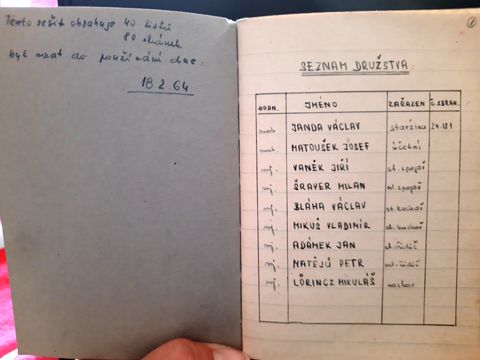 Tento sešit obsahuje 40 listů
80 stránek
byl vzat do používání dne:
18.2.64
1
SEZNAM DRUŽSTVA.
HODN. JMÉNO ZAŘAZEN Č.ZBRAN.
JANDA VÁCLAV staršina
MATOUŠEK JOSEF účetní
voj. VANĚK JIŘÍ st. spojař
voj. ŠRAVER MILAN ml. spojař
voj. BLÁHA VÁCLAV st. kuchař
voj. MIKUŠ VLADIMÍR ml. kuchař
voj. ADÁMEK JAN st. řidič
voj. MATĚJŮ PETR ml. řidič
voj. LŐRINCZ MIKULÁŠ